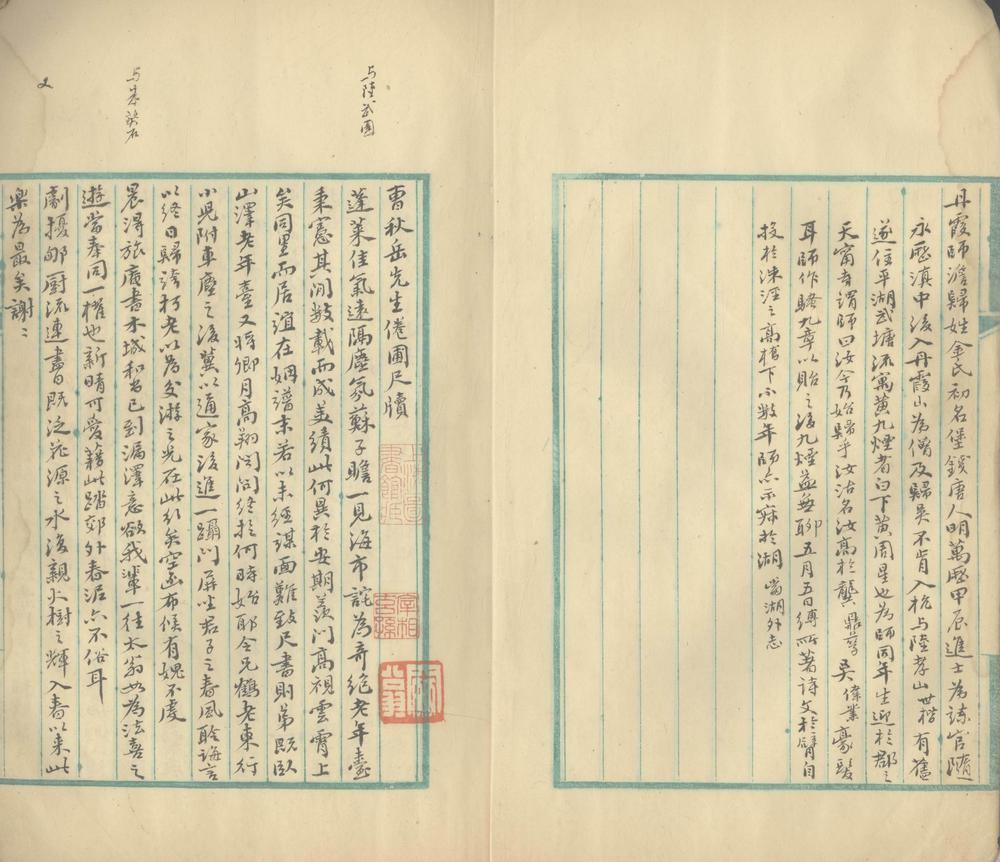 丹霞師澹歸姓金氏初名堡錢唐人明萬曆甲辰進士為諫官隨
永曆滇中後入丹霞山為僧及歸吳不肯入杭与陸孝山世楷有舊
遂住平湖武塘流寓黃九煙者白下黃周星也為師同年生迎於郡之
天甯寺謂師曰汝今乃始歸乎汝沽名汝高於龔鼎孳吳偉業豪髮
耳師作騷九章以貽之後九煙益無聊五月五日縛所著詩文於臂自
投於洙涇之高橋下不數年師亦示寂於湖 當湖外志
曹秋岳先生倦圃尺牘
与陸武園
蓬萊佳氣遠隔塵氛蘇子瞻一見海市詫為奇絕老年臺
秉憲其間數載而成美績此何異於安期羨門高視雲霄上
矣同里而居誼在姻譜末若以未經謀面難致尺書則弟既臥
山澤老年臺又將卿月高翔問問終於何時始耶令兄鶴老東行
小兒附車塵之後冀以通家後進一躡門屏坐君子之春風聆誨言
以終日歸誇朽老以為交游之光在此行矣空函布候有媿不虔
与朱葵石
晨得旅庵書木城和尚已到漏澤意欲我輩一往太翁如為法喜之
遊當奉同一櫂也新晴可愛藉此踏郊外春泥亦不俗耳
又
劇擾郇厨流連書日既泛花源之水復親火樹之輝入春以來此
樂為最矣謝〻